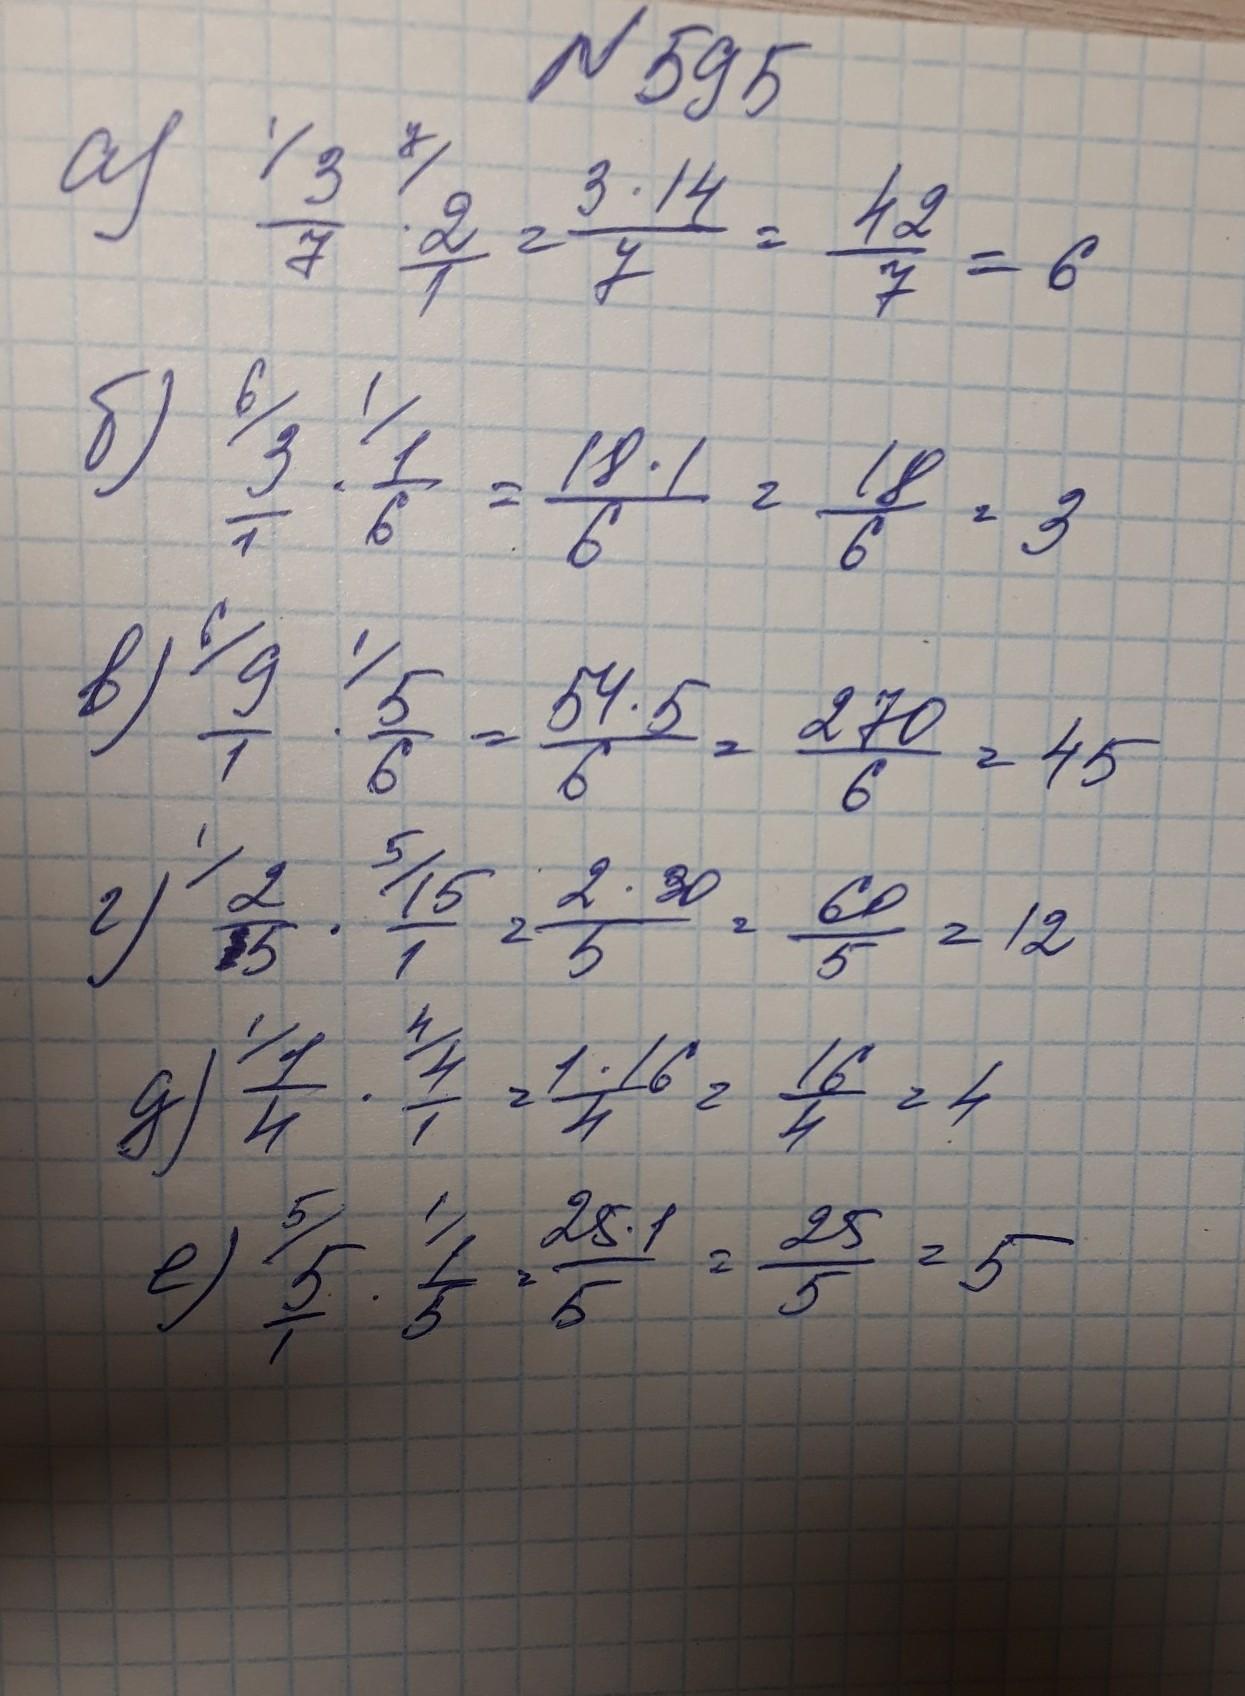 № 595
а) 1/ 3/7 · 7/ 2/1 = 3·14/7 = 42/7 = 6
б) 6/ 3/1 · 1/ 1/6 = 18·1/6 = 18/6 = 3
в) 6/ 9/1 · 1/ 5/6 = 54·5/6 = 270/6 = 45
г) 1/ 2/5 · 5/ 15/1 = 2·30/5 = 60/5 = 12
д) 1/ 1/4 · 4/ 4/1 = 1·16/4 = 16/4 = 4
е) 5/ 5/1 · 1/ 1/5 = 25·1/5 = 25/5 = 5